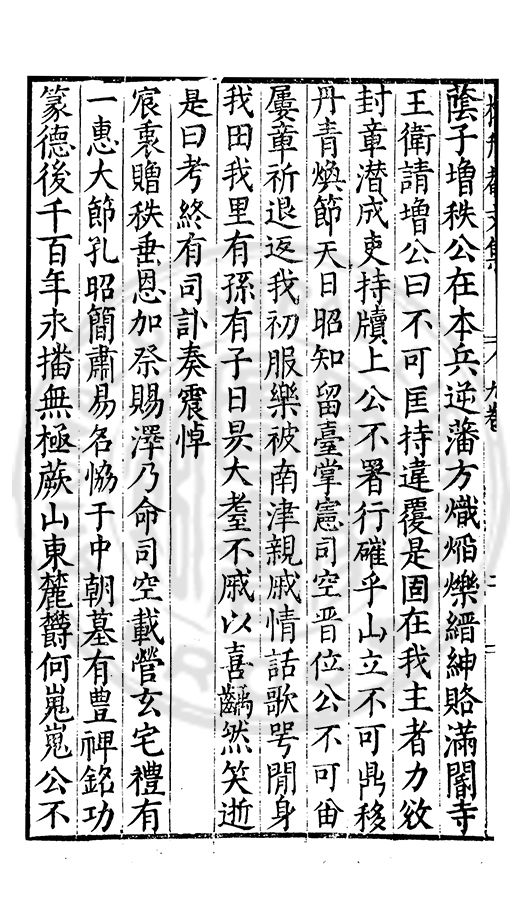 蔭子增秩公在本兵逆藩方熾熖爍縉紳賂滿閹寺
王衛請增公曰不可匡持違覆是固在我主者力欲
封章潜成吏持牘上公不署行確乎山立不可鼎移
丹青煥節天日昭知留臺掌憲司空晋位公不可留
屢章祈退返我初服樂被南津親戚情話歌咢閒身
我田我里有孫有子日昃大耋不戚以喜齲然笑逝
是曰考終有司訃奏震悼
宸衷贈秩垂恩加祭賜澤乃命司空載營玄宅禮有
一惠大節孔昭簡肅易名恊于中朝墓有豊碑銘功
篆德後千百年永播無極蕨山東麓欝何嵬嵬公不